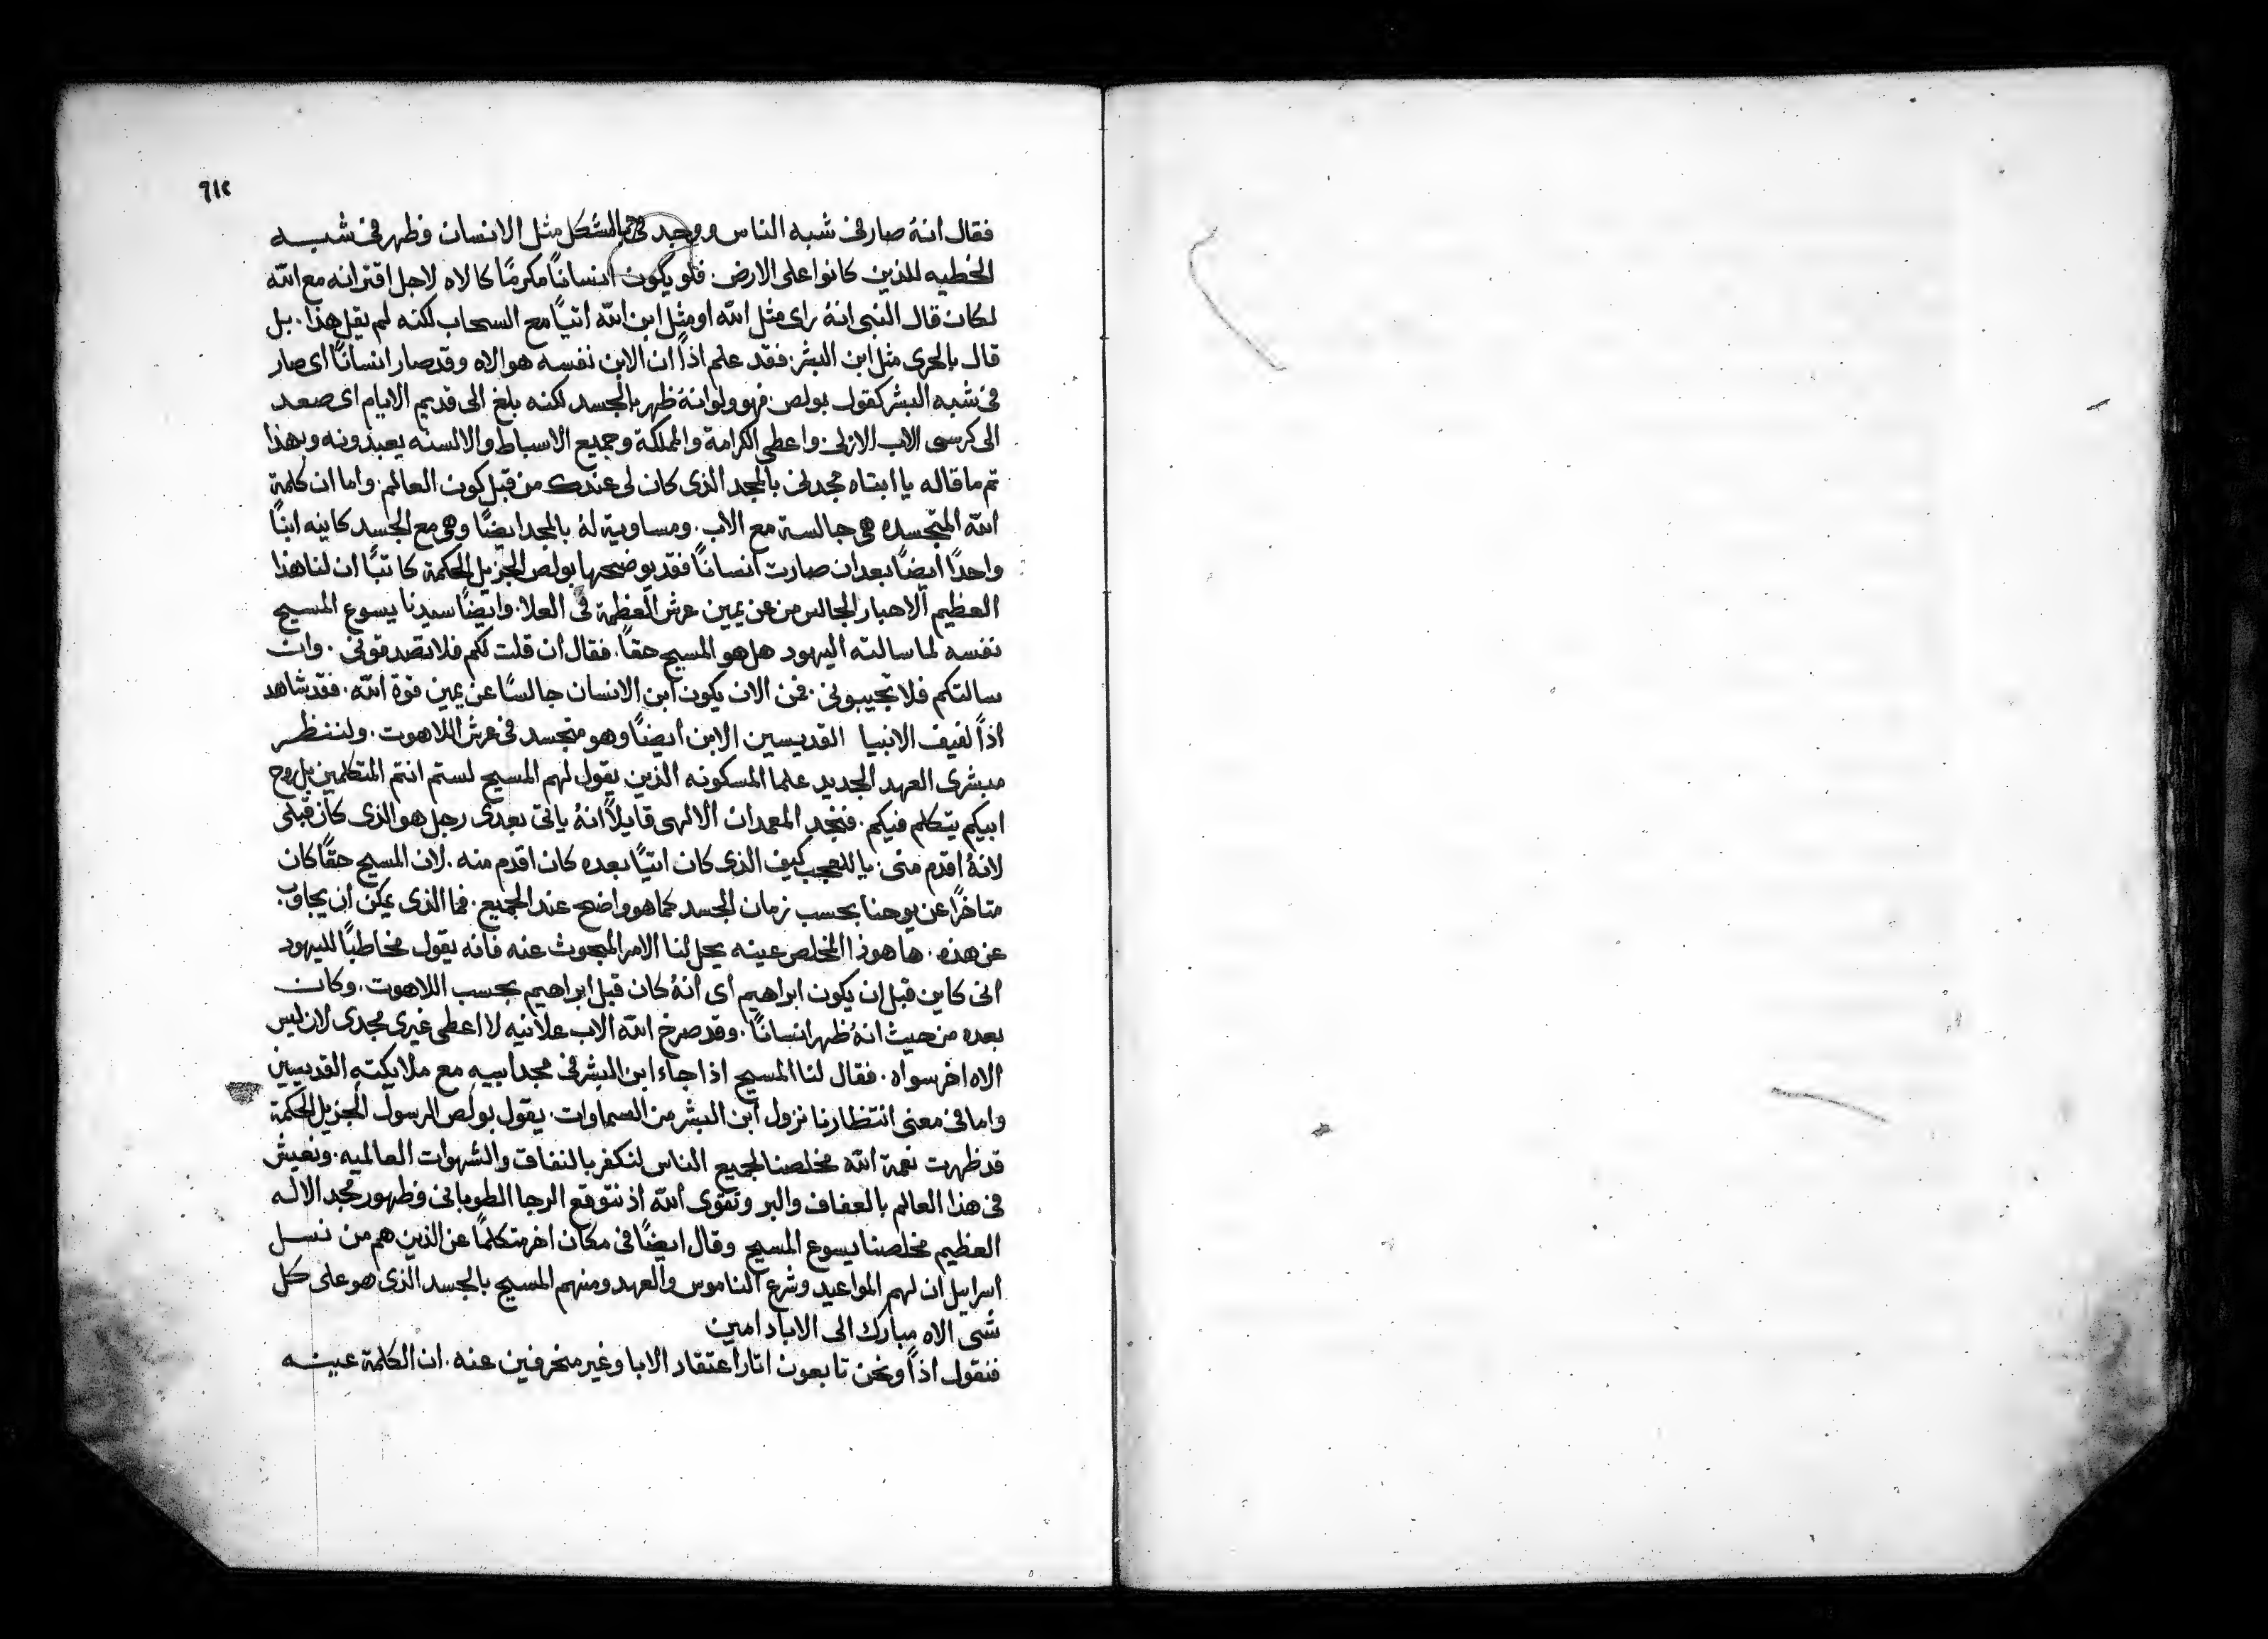 ٩١٢
فقال انهُ صار فى شبه الناس ووجد فى الشكل مثل الانسان وظهر فى شبه
الخطيه للذين كانوا على الارض. فلو يكون انسانًا مكرمًا كالاه لاجل اقترانه مع الله
لكان قال النبى انهُ راى مثل الله او مثل ابن الله اتيًا مع السحاب لكنه لم يقل هذا. بل
قال بالحرى مثل ابن البشر. فقد علم اذًا ان الابن نفسه هو الاه وقد صار انسانًا اى صار
فى شبه البشر كقول بولص. فهو ولو انهُ ظهر بالجسد لكنه بلغ الى قديم الايام اى صعد
الى كرسى الاب الازلى. واعطى الكرامة والمملكة وجميع الاسباط والالسنه يعبدونه وبهذا
تم ما قاله يا ابتاه مجدنى بالمجد الذى كان لى عندك من قبل كون العالم. واما ان كلمة
الله المتجسده هى جالسة مع الاب. ومساوية لهُ بالمجد ايضًا وهى مع الجسد كاينه ابنًا
واحدًا ايضًا بعد ان صارت انسانًا فقد يوضحها بولص الجزيل الحكمة كاتبًا ان لنا هذا
العظيم الاحبار الجالس من عن يمين عرش العظمة فى العلا. وايضًا سيدنا يسوع المسيح
نفسه لما سالته اليهود هل هو المسيح حقًا. فقال ان قلت لكم فلا تصدقونى. وان
سالتكم فلا تجيبونى. فمن الان يكون ابن الانسان جالسًا عن يمين قوة الله. فقد شاهد
اذًا لفيف الانبيا القديسين الابن ايضًا وهو متجسد فى عرش اللاهوت. ولننظر
مبشرى العهد الجديد علما المسكونه الذين يقول لهم المسيح لستم انتم المتكلمين بل روح
ابيكم يتكلم فيكم. فنجد المعمدان الالهى قايلًا انهُ ياتى بعدى رجل هو الذى كان قبلى
لانهُ اقدم منى. يا للعجب كيف الذى كان اتيًا بعده كان اقدم منه. لان المسيح حقًا كان
متاخرًا عن يوحنا بحسب زمان الجسد كما هو واضح عند الجميع. فما الذى يمكن ان يجاوب
عن هذه. ها هوذا المخلص عينه يحل لنا الامر المبحوث عنه فانه يقول مخاطبًا لليهود
انى كاين قبل ان يكون ابراهيم اى انهُ كان قبل ابراهيم بحسب اللاهوت. وكان
بعده من حيث انهُ ظهر انسانًا. وقد صرخ الله الاب علانيه لا اعطى غيرى مجدى لان ليس
الاه اخر سواه. فقال لنا المسيح اذا جاء ابن البشر فى مجد ابيه مع ملايكته القديسين
واما فى معنى انتظارنا نزول ابن البشر من السماوات. يقول بولص الرسول الجزيل الحكمة
قد ظهرت نعمة الله مخلصنا لجميع الناس لنكفر بالنفاق والشهوات العالميه. ونعيش
فى هذا العالم بالعفاف والبر وتقوى الله اذ نتوقع الرجا الطوبانى وظهور مجد الاله
العظيم مخلصنا يسوع المسيح وقال ايضًا فى مكان اخر متكلمًا عن الذين هم من نسل
اسراييل ان لهم المواعيد وشرع الناموس والعهد ومنهم المسيح بالجسد الذى هو على كل
شى الاه مبارك الى الاباد امين
فنقول اذًا ونحن تابعون اثار اعتقاد الابا وغير منحرفين عنه. ان الكلمة عينه